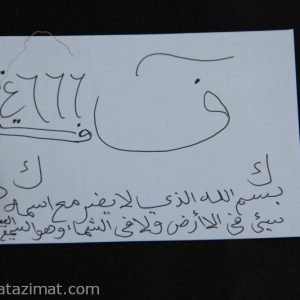 فا ٤٦٦٦
ك ك
بسم الله الذي لا يضر مع اسمه
شيئ في الأرض ولا في السماء وهو السميع
atazimat.com